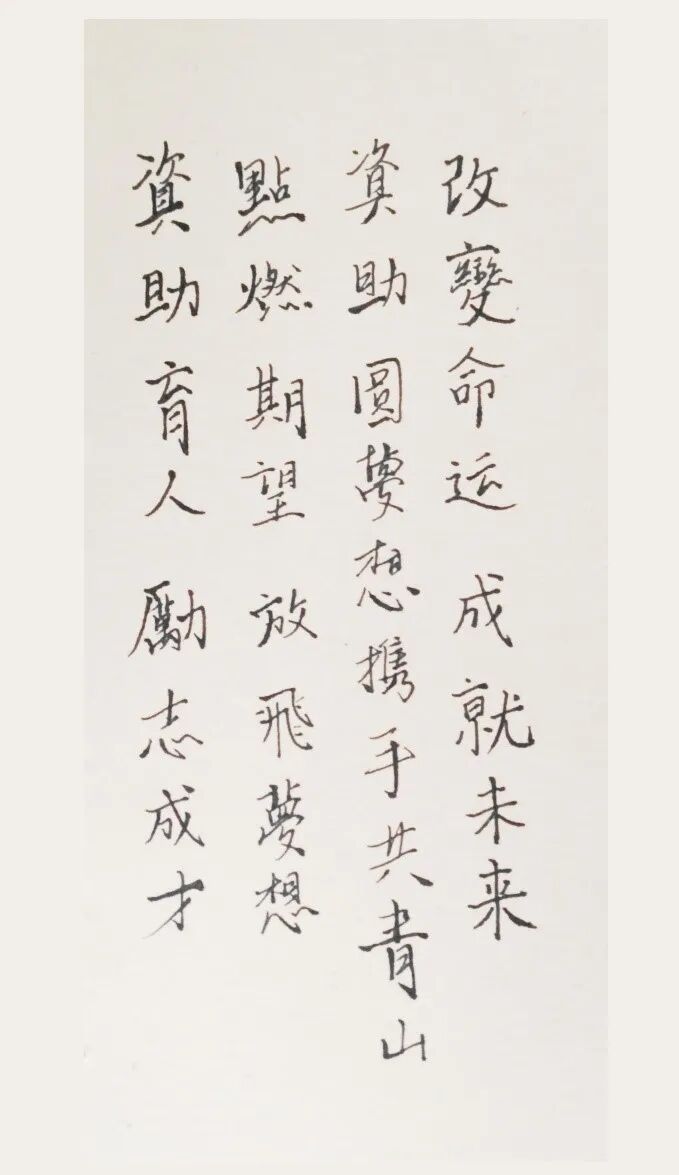 改變命运 成就未来
資助圆夢想携手共青山
點燃期望 放飛夢想
資助育人 勵志成才